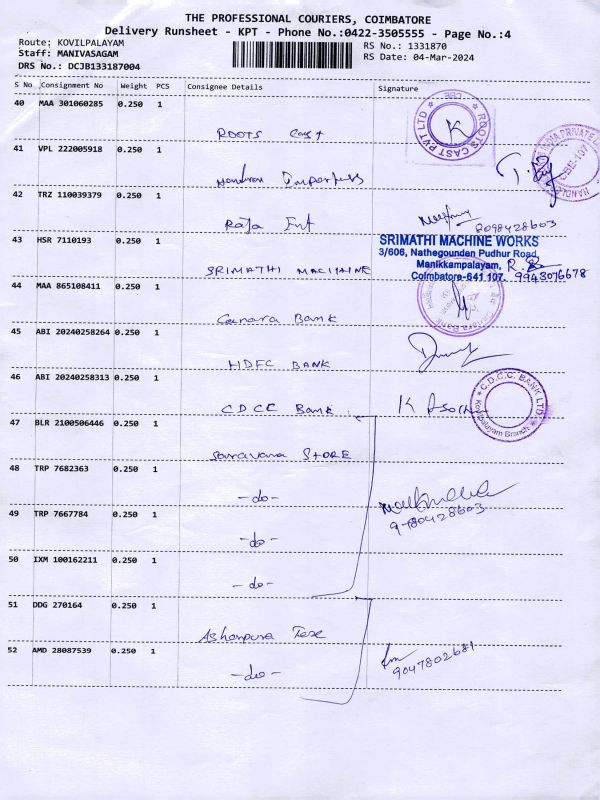 THE PROFESSIONAL COURIERS, COIMBATORE
Delivery Runsheet - KPT - Phone No.:0422-3505555 - Page No.:4
Route: KOVILPALAYAM
Staff: MANIVASAGAM
DRS No.: DCJB133187004
RS No.: 1331870
RS Date: 04-Mar-2024
S No Consignment No Weight PCS Consignee Details Signature
40 MAA 301060285 0.250 1
ROOTS Cast
ROOTS CAST PVT LTD * CBE *
K
41 VPL 222005918 0.250 1
INDIA PRIVATE
CBE-107
42 TRZ 110039379 0.250 1
Raja Ent
8098428603
43 HSR 7110193 0.250 1
SRIMATHI MACHINE
SRIMATHI MACHINE WORKS
3/606, Nathegounden Pudhur Road,
Manikkampalayam,
Coimbatore-641 107.
9948076678
44 MAA 865108411 0.250 1
Canara Bank
45 ABI 20240258264 0.250 1
HDFC BANK
46 ABI 20240258313 0.250 1
CDCC Bank
C.D.C.C. BANK LTD.
Kovilpalayam Branch
47 BLR 2100506446 0.250 1
Saravana STORE
48 TRP 7682363 0.250 1
-do-
9780428603
49 TRP 7667784 0.250 1
-do-
50 IXM 100162211 0.250 1
-do-
51 DDG 270164 0.250 1
Ashapura Texe
52 AMD 28087539 0.250 1
-do-
9047802681